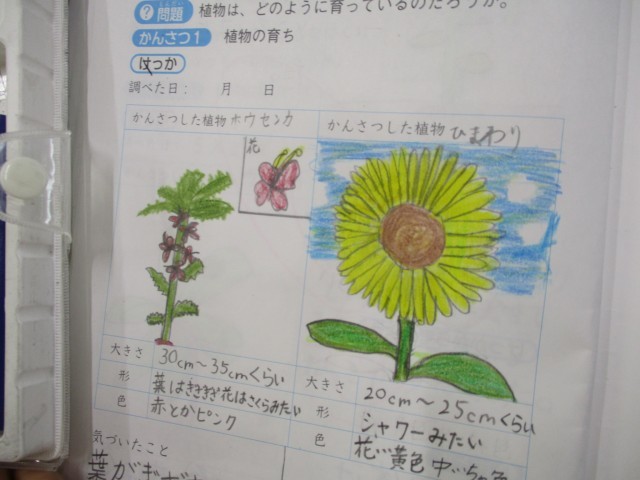 ?問題 植物は、どのように育っているのだろうか。
かんさつ1 植物の育ち
けっか
調べた日： 月 日
かんさつした植物 ホウセンカ
花
大きさ 30cm〜35cmくらい
形 葉はぎざぎざ花はさくらみたい
色 赤とかピンク
かんさつした植物 ひまわり
大きさ 20cm〜25cmくらい
形 シャワーみたい
色 花…黄色 中…ちゃ色
気づいたこと
葉がギザ